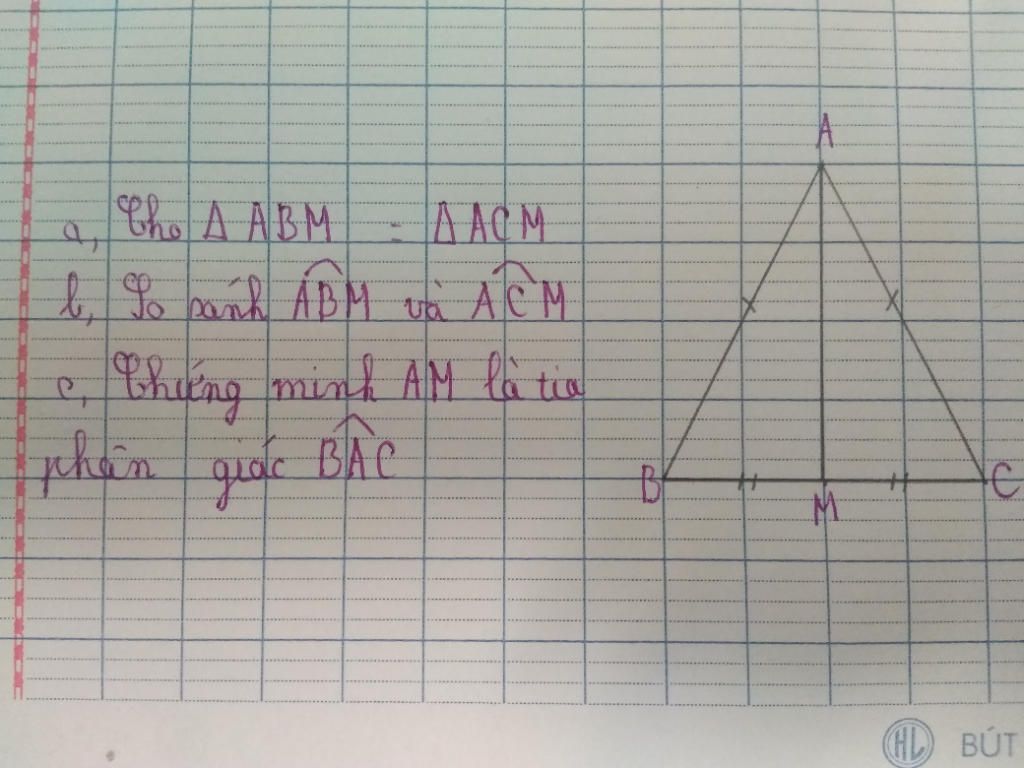 a, Cho Δ ABM = Δ ACM
b, So sánh ABM và ACM
c, Chứng minh AM là tia
phân giác BAC
A
B
M
C
HL BÚT